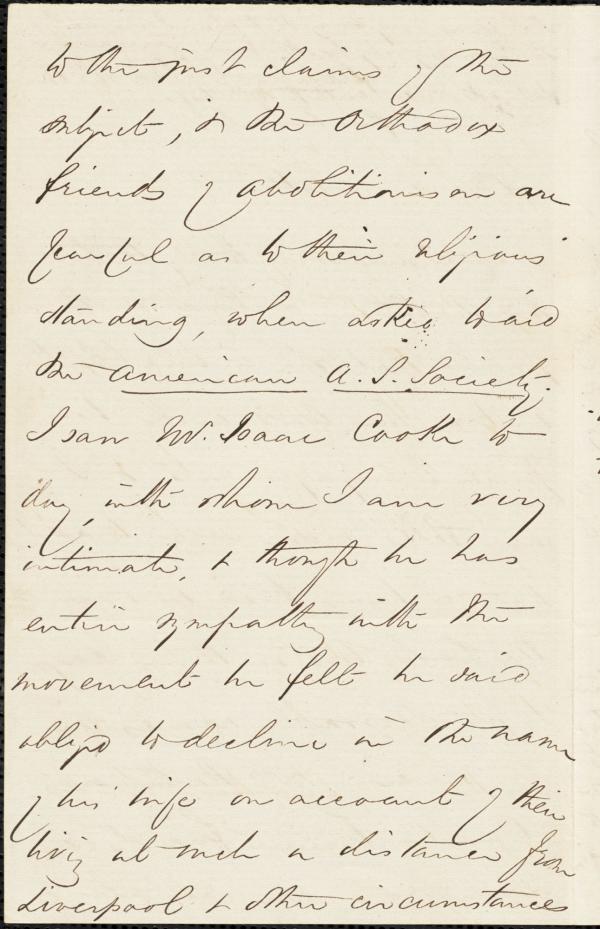 to the just claims of the
subject, & the Orthodox
friends of abolitionism are
fearful as to their religious
standing, when asked to aid
the American A. S. Society.
I saw Mr. Isaac Cooke to
day, with whom I am very
intimate, & though he has
entire sympathy with the
movement he felt he said
obliged to decline in the name
of his wife on account of their
living at such a distance from
Liverpool & other circumstances